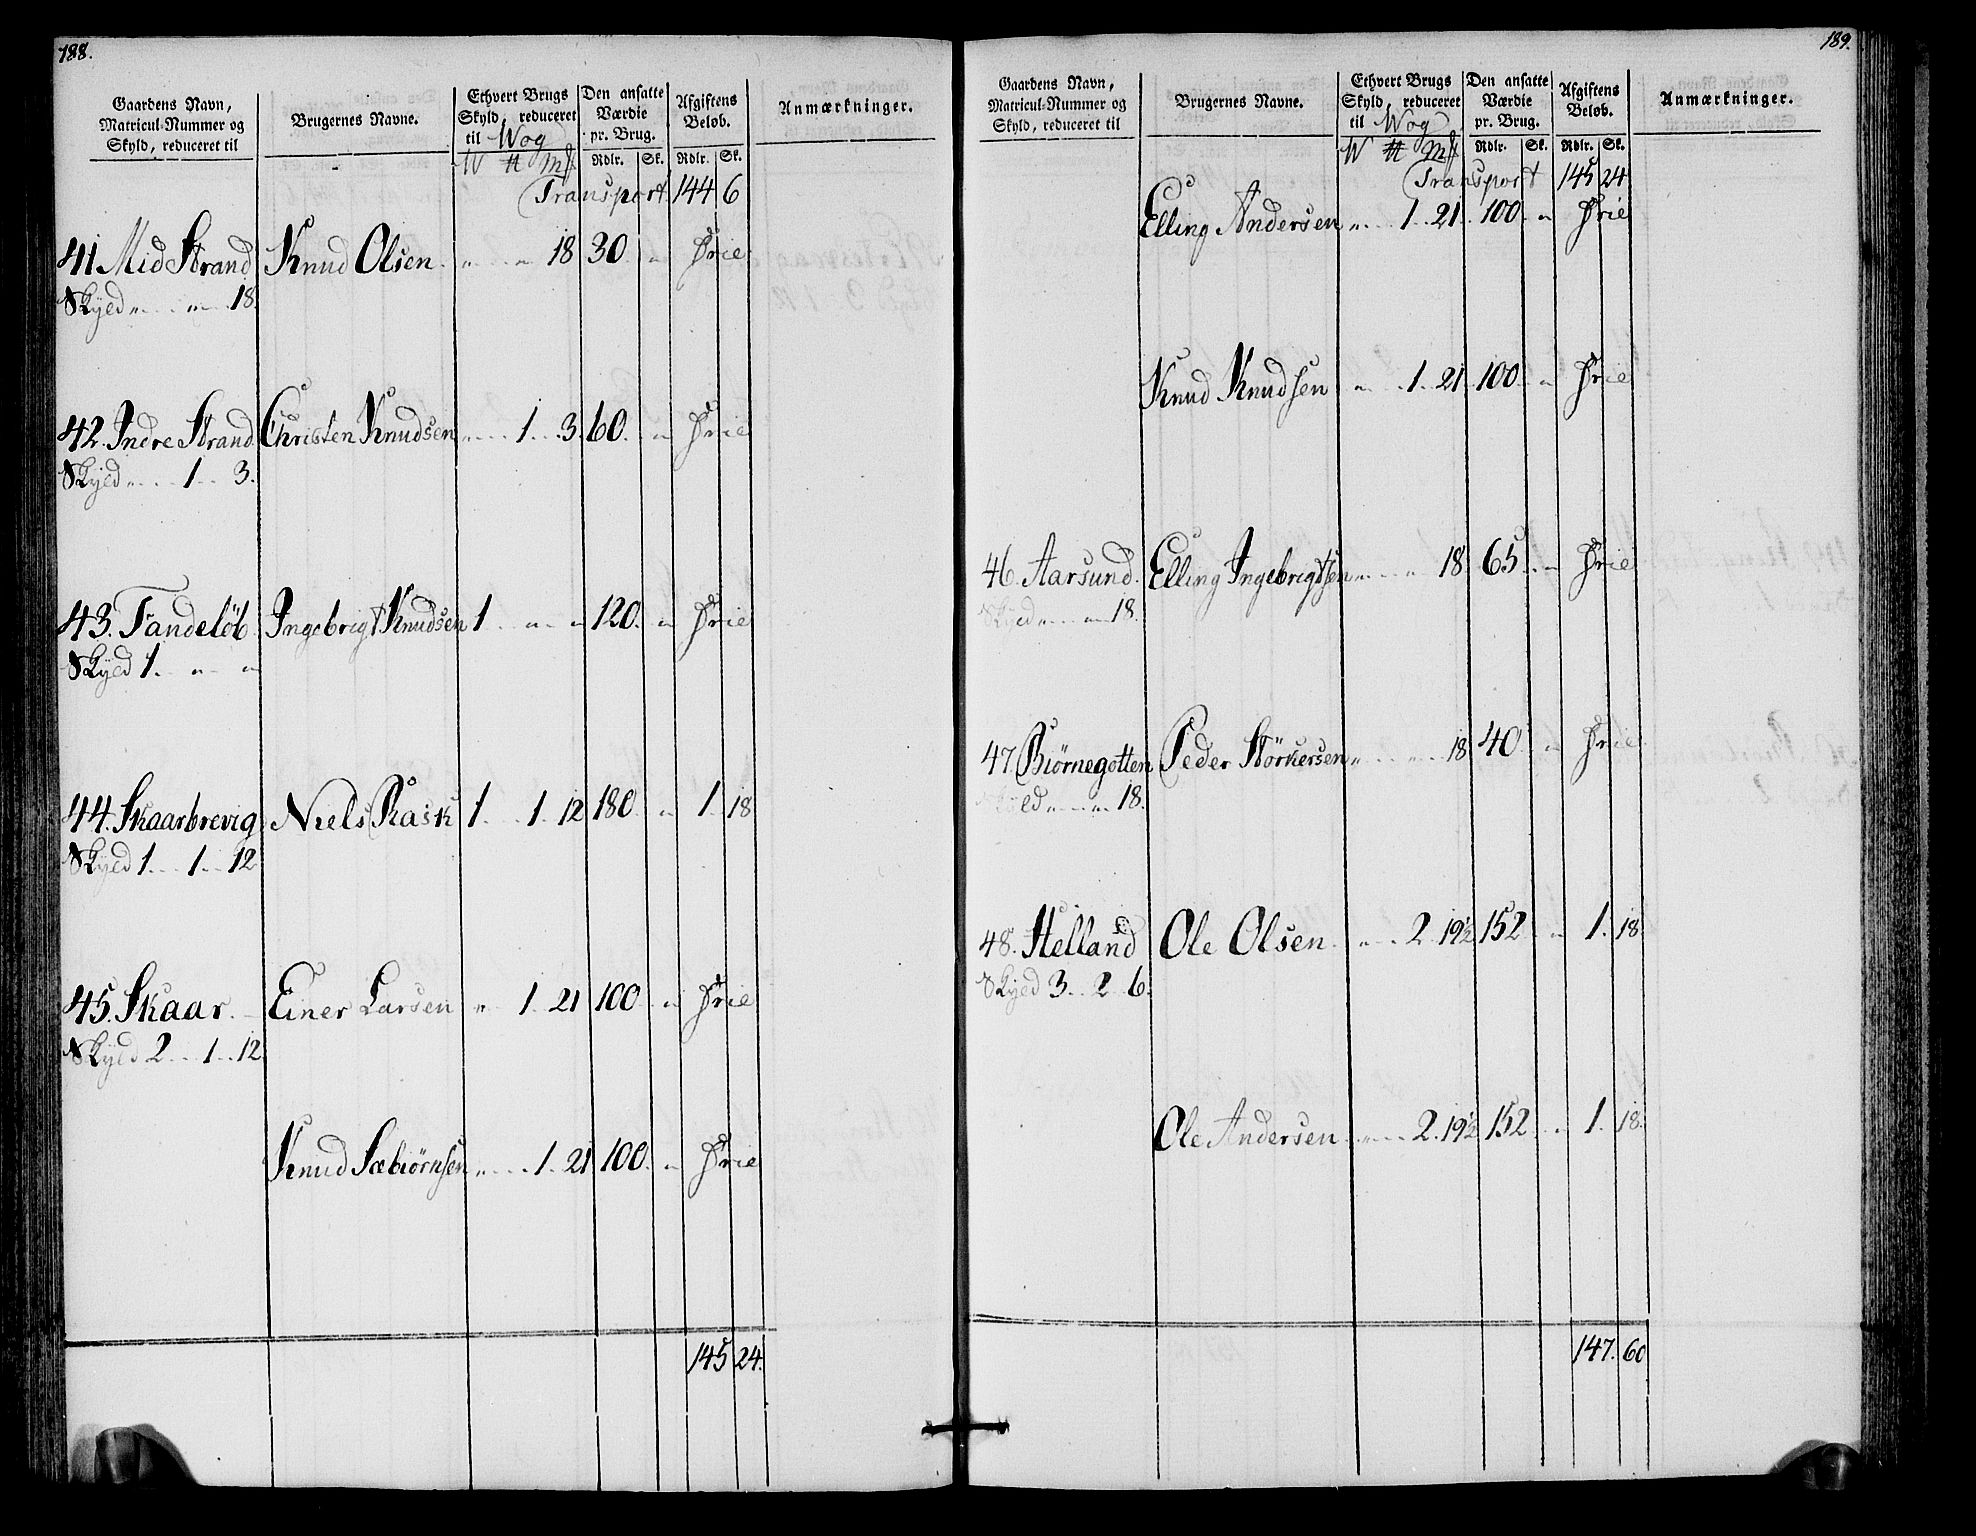 188.
Gaardens Navn, Matricul-Nummer og Skyld, reduceret til
Brugernes Navne.
Ethvert Brugs Skyld, reduceret til Wog
Den ansatte Værdie pr. Brug.
Afgiftens Beløb.
Anmærkninger.
W ℔ Mk Rdlr. Sk. Rdlr. Sk.
Transport 144 6
41 Mid Strand Knud Olsen „ „ 18 30 „ Frie
Skyld „ „ 18.
42. Indre Strand Christen Knudsen „ 1 3. 60. „ Frie
Skyld „ 1 3.
43. Tandeløb Ingebrigt Knudsen 1 „ „ 120. „ Frie
Skyld 1. „ „
44. Skaarbrevig Niels Rask 1 1 12 180 „ 1. 18
Skyld 1 1 12
45. Skaar Einer Larsen „ 1 21 100 „ Frie
Skyld 2 1 12
Knud Sæbiørnsen „ 1. 21 100. „ Frie
145 24.
189.
Gaardens Navn, Matricul-Nummer og Skyld, reduceret til
Brugernes Navne.
Ethvert Brugs Skyld, reduceret til Wog
Den ansatte Værdie pr. Brug.
Afgiftens Beløb.
Anmærkninger.
W ℔ Mk Rdlr. Sk. Rdlr. Sk.
Transport 145 24
Elling Andersen „ 1 21. 100. „ Frie
Knud Knudsen „ 1. 21. 100 „ Frie
46. Aarsund. Elling Ingebrigtsen „ „ 18 65. „ Frie
Skyld „ „ 18.
47. Biørnegotten Peder Størkersen „ „ 18 40 „ Frie
Skyld „ „ 18.
48. Helland Ole Olsen „ 2 19½ 152 „ 1. 18
Skyld 3 2 6.
Ole Andersen „ 2. 19½ 152 „ 1. 18.
147. 60